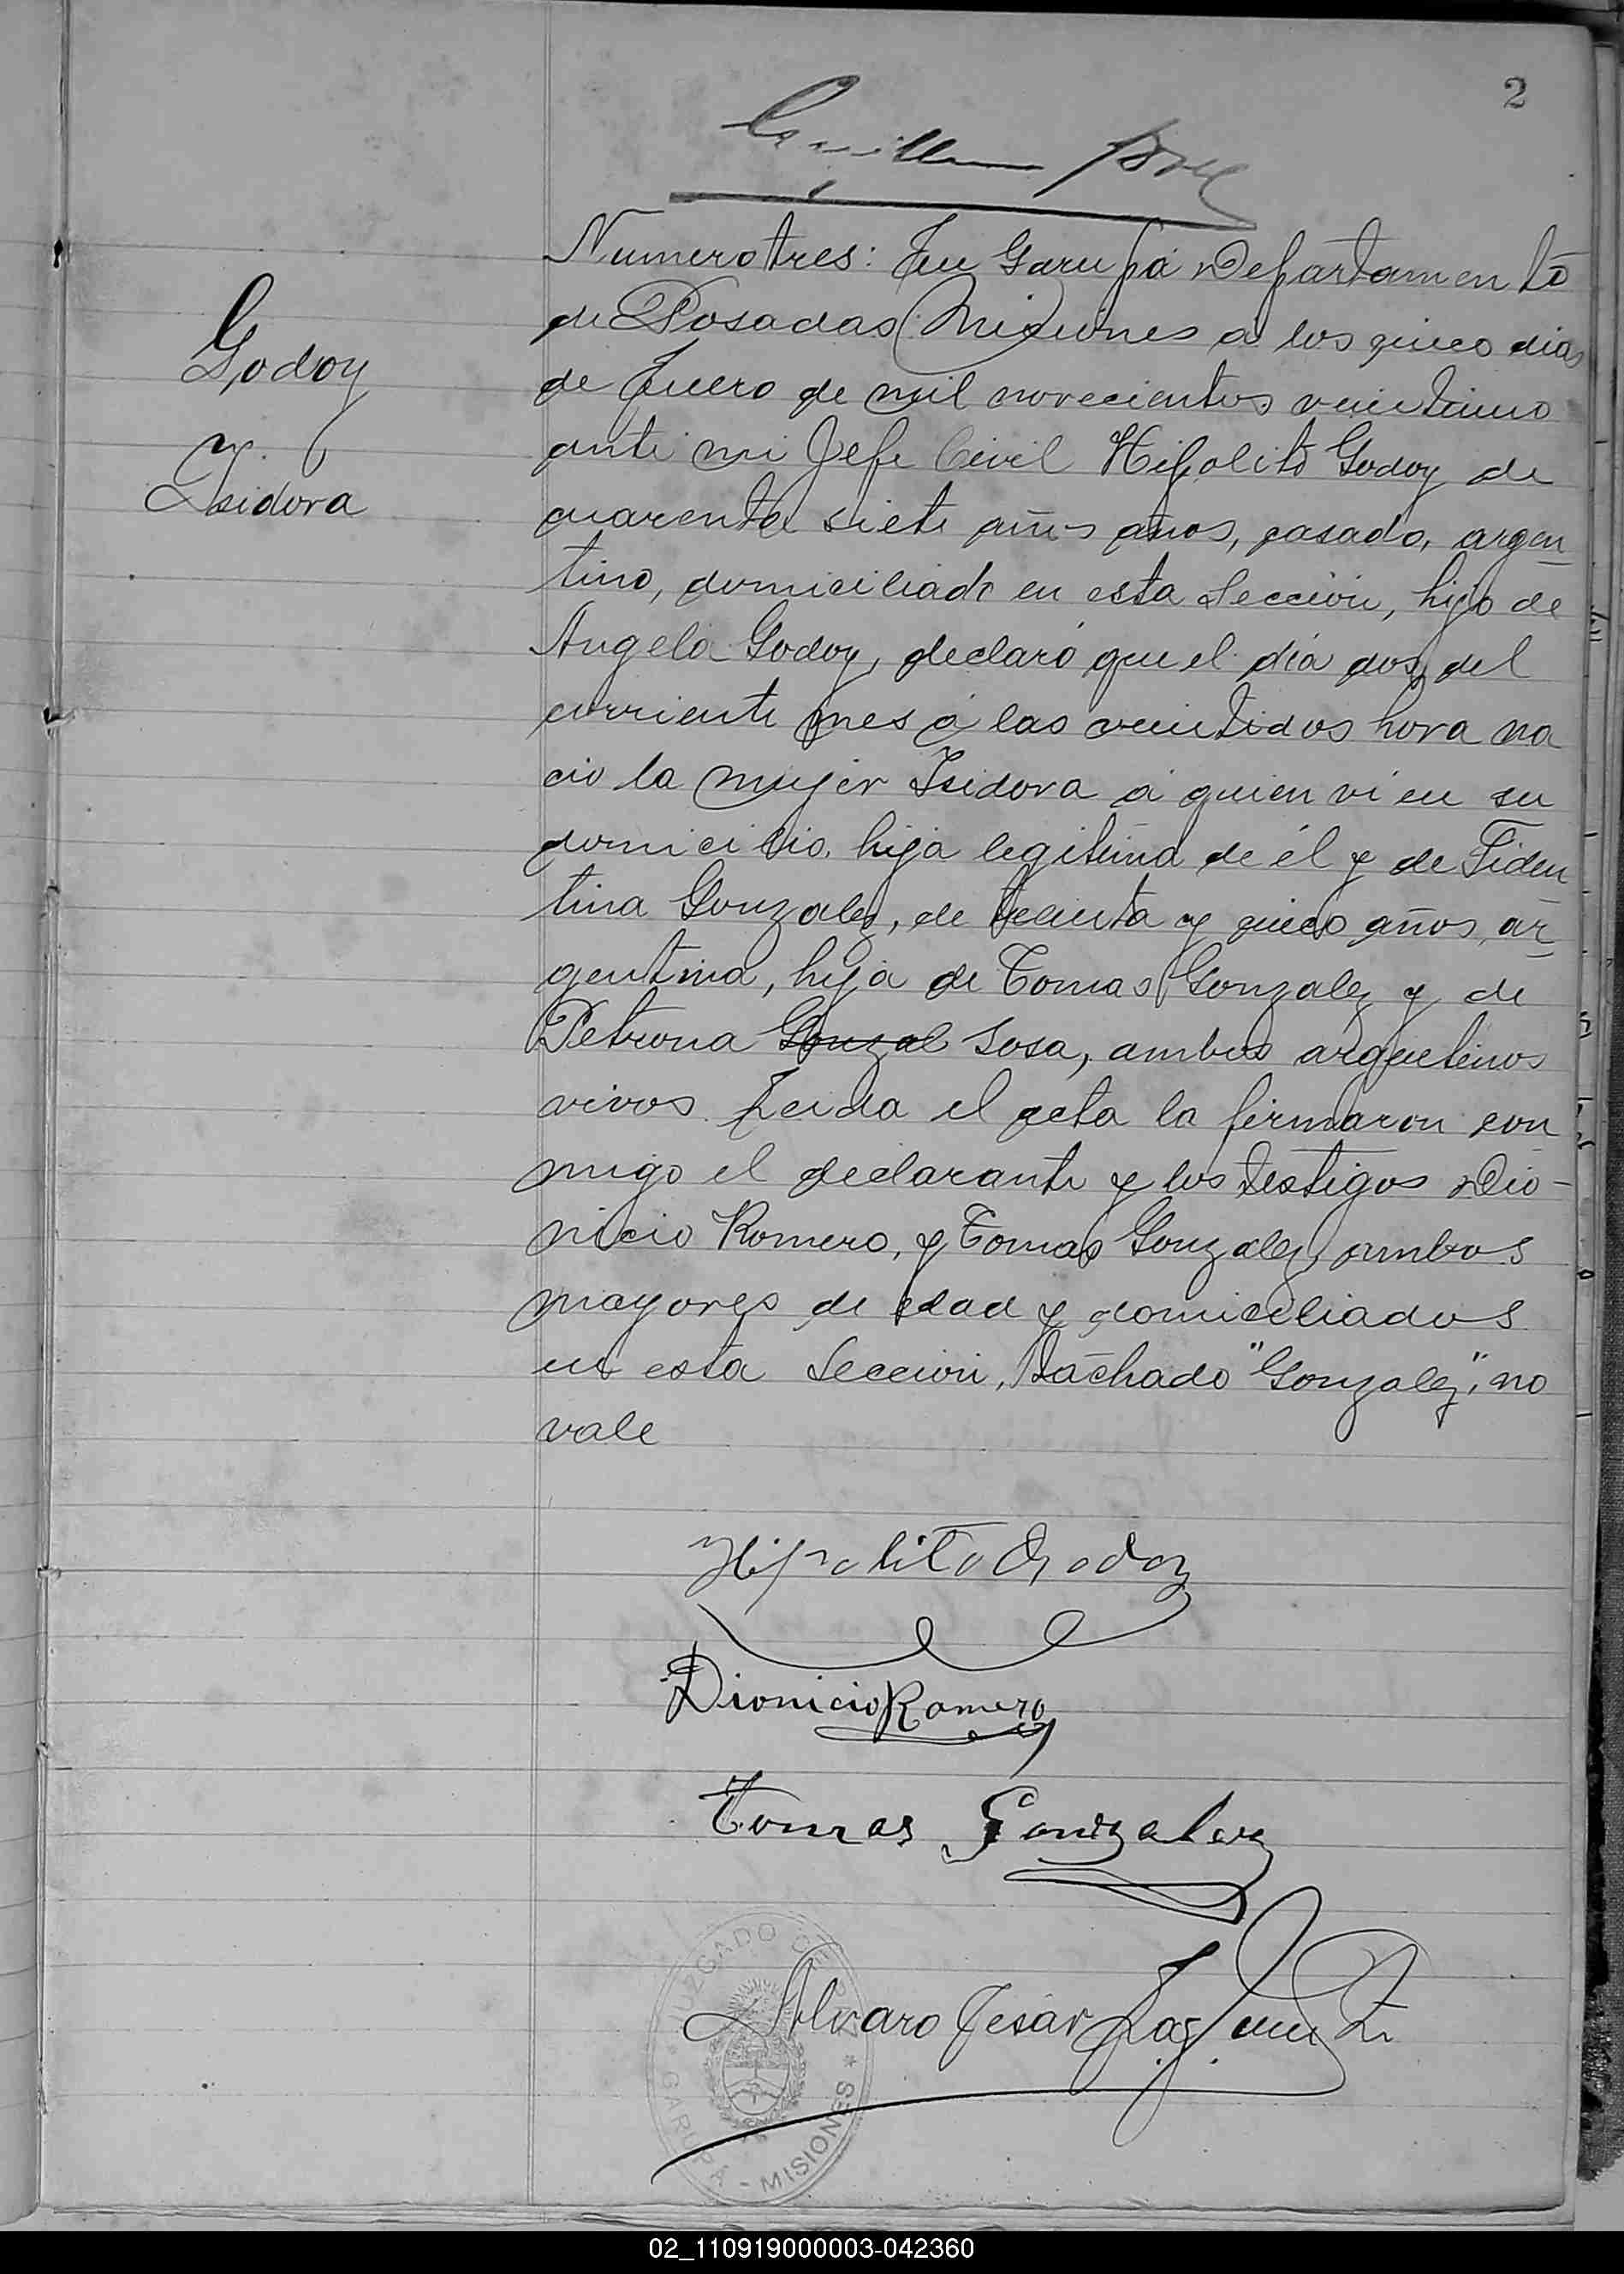 2
Numero tres: En Garupá Departamento
de Posadas Misiones á los cinco dias
de Enero de mil novecientos veintiuno
ante mi Jefe Civil Hipolito Godoy de
cuarenta siete años años, casado, argen
tino, domiciliado en esta Sección, hijo de
Angela Godoy, declaró que el día dos del
corriente mes á las veintidos hora na
cio la mujer Isidora á quien ví en su
domicilio, hija legitima de él y de Fiden
tina Gonzalez, de treinta y cinco años, ar
gentina, hija de Tomas Gonzalez y de
Petrona Gonzal Sosa, ambos argentinos
vivos. Leida el acta la firmaron con
migo el declarante y los testigos Dio-
nicio Romero, y Tomas Gonzalez, ambos
mayores de edad y domiciliados
en esta Sección, Tachado "Gonzalez", no
vale
Godoy
Y.
Isidora
Hipolito Godoy
Dionicio Romero
Tomas Gonzalez
Alvaro Cesar
JUZGADO DE PAZ * GARUPA - MISIONES *
02_110919000003-042360